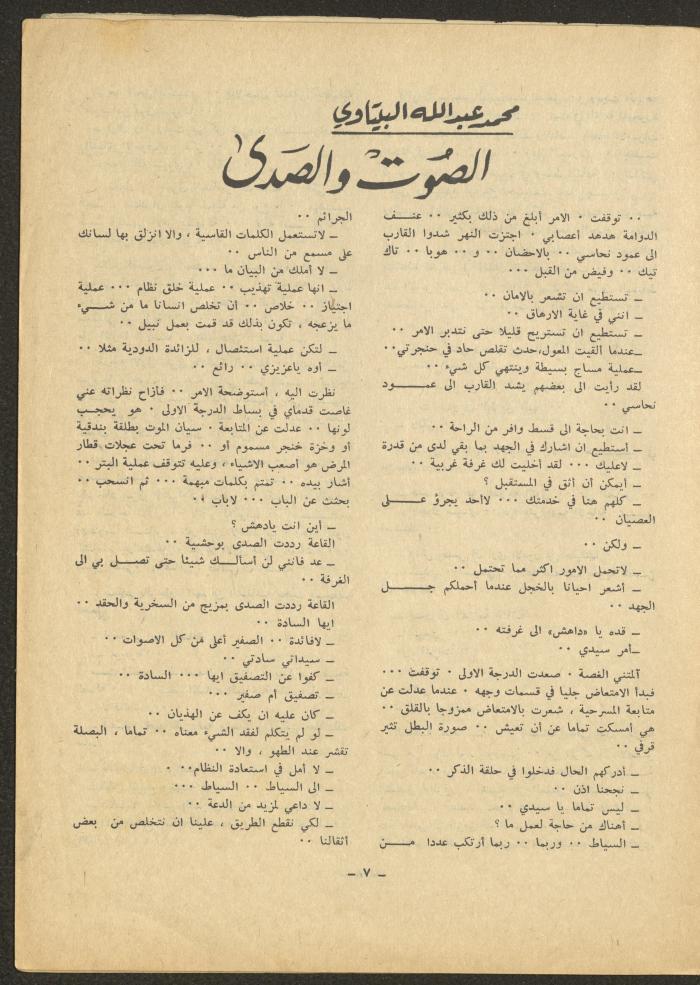 محمد عبدالله البيتاوي
الصوت والصدى
٠٠ توقفت ٠ الامر أبلغ من ذلك بكثير ٠٠ عنف
الدوامة هدهد أعصابي ٠ اجتزت النهر شدوا القارب
الى عمود نحاسي ٠٠ بالاحضان ٠٠ و ٠٠ هوبا ٠٠ تاك
تيك ٠٠ وفيض من القبل ٠٠٠
ـ تستطيع ان تشعر بالامان ٠٠
ـ انني في غاية الارهاق ٠٠
ـ تستطيع ان تستريح قليلا حتى نتدبر الامر ٠٠
ـ عندما ألقيت المعول،حدث تقلص حاد في حنجرتي٠٠
ـ عملية مساج بسيطة وينتهي كل شيء ٠٠
لقد رأيت الى بعضهم يشد القارب الى عمود
نحاسي ٠٠
ـ انت بحاجة الى قسط وافر من الراحة ٠٠
ـ أستطيع ان اشارك في الجهد بما بقي لدى من قدرة
ـ لاعليك ٠٠٠ لقد أخليت لك غرفة غربية ٠٠
ـ أيمكن أن أثق في المستقبل ؟
ـ كلهم هنا في خدمتك ٠٠٠ لاأحد يجرؤ على
العصيان ٠٠
ـ ولكن ٠٠
ـ لاتحمل الامور اكثر مما تحتمل ٠٠
ـ أشعر احيانا بالخجل عندما أحملكم جل
الجهد ٠٠
ـ قده يا «داهش» الى غرفته ٠٠
ـ أمر سيدي ٠٠
ألمتني الغصة ٠ صعدت الدرجة الاولى ٠ توقفت ٠٠٠
فبدأ الامتعاض جليا في قسمات وجهه ٠ عندما عدلت عن
متابعة المسرحية ، شعرت بالامتعاض ممزوجا بالقلق ٠٠
هي أمسكت تماما عن أن تعيش ٠٠ صورة البطل تثير
قرفي ٠٠
ـ أدركهم الحال فدخلوا في حلقة الذكر ٠٠
ـ نجحنا اذن ٠٠
ـ ليس تماما يا سيدي ٠٠
ـ أهناك من حاجة لعمل ما ؟
ـ السياط ٠٠ وربما ٠٠ ربما أرتكب عددا من
الجرائم ٠٠
ـ لاتستعمل الكلمات القاسية ، والا انزلق بها لسانك
على مسمع من الناس ٠٠
ـ لا أملك من البيان ما ٠٠٠
ـ انها عملية تهذيب ٠٠ عملية خلق نظام ٠٠٠ عملية
اجتياز ٠٠ خلاص ٠٠ أن تخلص انسانا ما من شيء
ما يزعجه ، تكون بذلك قد قمت بعمل نبيل ٠٠
ـ لتكن عملية استئصال ، للزائدة الدودية مثلا ٠٠
ـ أوه ياعزيزي ٠٠ رائع ٠٠
نظرت اليه ، أستوضحة الامر ٠٠ فأزاح نظراته عني
غاصت قدماي في بساط الدرجة الاولى ٠ هو يحجب
لونها ٠٠ عدلت عن المتابعة ٠ سيان الموت بطلقة بندقية
أو وخزة خنجر مسموم أو ٠٠ فرما تحت عجلات قطار
المرض هو أصعب الاشياء ، وعليه تتوقف عملية البتر ٠٠
أشار بيده ٠٠ تمتم بكلمات مبهمة ٠٠٠ ثم انسحب ٠٠
بحثت عن الباب ٠٠٠ لاباب ٠٠
ـ أين انت يادهش ؟
القاعة رددت الصدى بوحشية ٠٠
ـ عد فانني لن أسألك شيئا حتى تصل بي الى
الغرفة ٠٠
القاعة رددت الصدى بمزيج من السخرية والحقد ٠٠
ايها السادة ٠٠
ـ لافائدة ٠٠ الصفير أعلى من كل الاصوات ٠٠
ـ سيداتي سادتي ٠٠
ـ كفوا عن التصفيق ايها ٠٠٠ السادة ٠٠
ـ تصفيق أم صفير ٠٠٠
ـ كان عليه ان يكف عن الهذيان ٠٠
ـ لو لم يتكلم لفقد الشيء معناه ٠٠ تماما ، البصلة
تقشر عند الطهو ، والا ٠٠
ـ لا أمل في استعادة النظام٠٠ ٠
ـ الى السياط ٠٠ السياط ٠٠٠
ـ لا داعي لمزيد من الدعة ٠٠
ـ لكي نقطع الطريق ، علينا ان نتخلص من بعض
أثقالنا ٠٠
ـ ٧ ـ